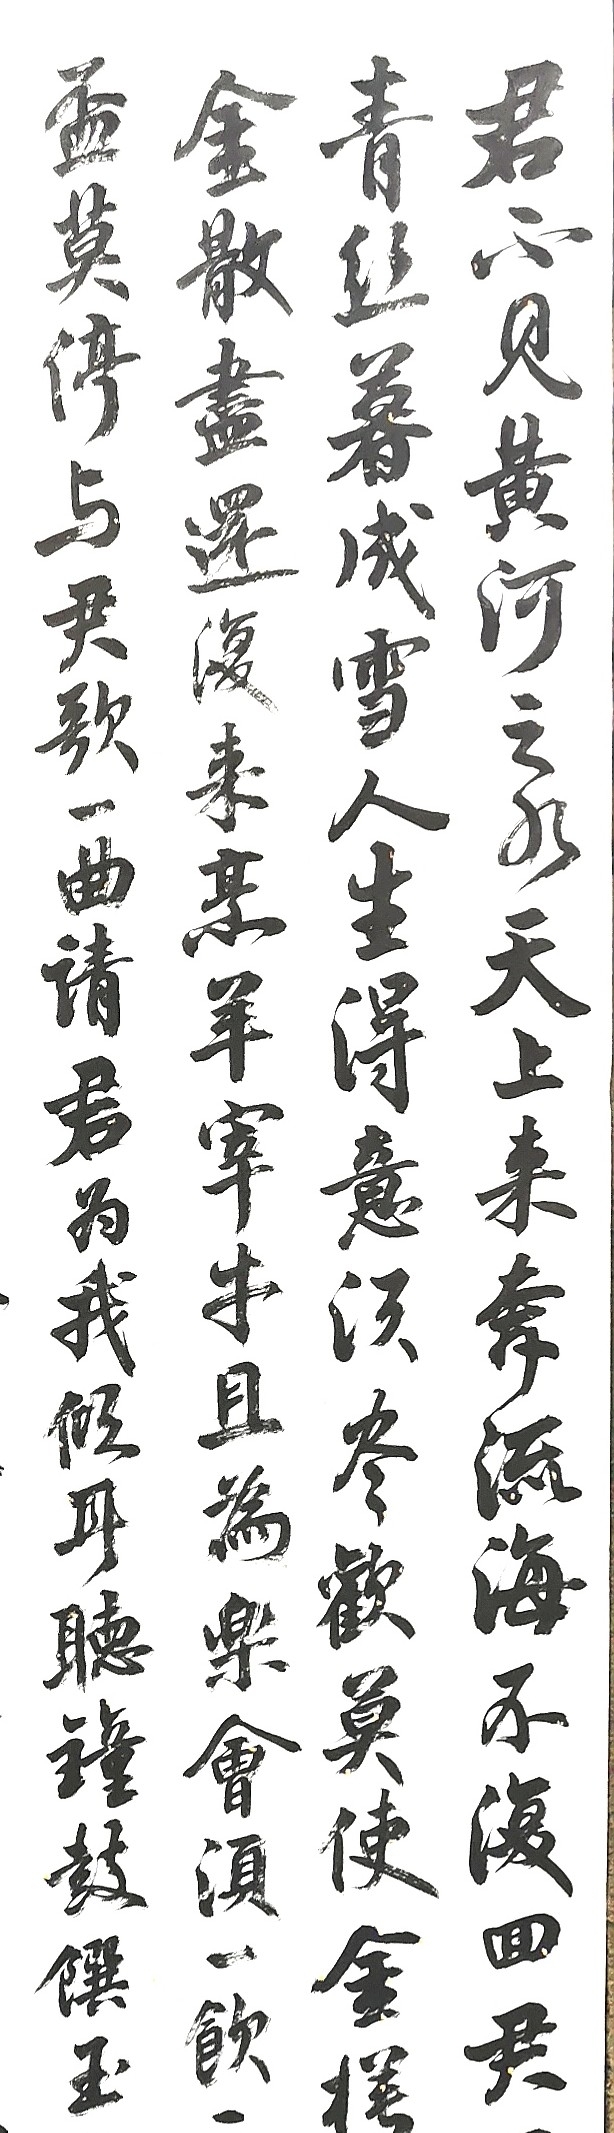 君不見黄河之水天上来奔流海不復回君
青丝暮成雪人生得意須尽歡莫使金樽
金散盡還復来烹羊宰牛且為樂會須一飲一
盃莫停与君歌一曲请君为我倾耳聴鐘鼓饌玉